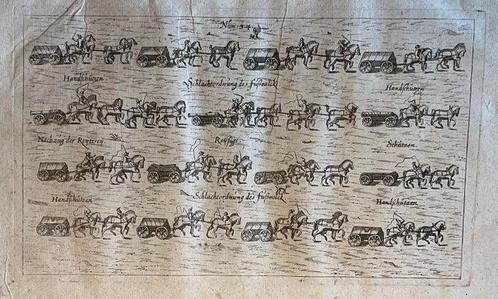 Num: 34
Handschützen Schlachtordnung des fußvolck Handschützen
Nachzug der Reyteren Reysige Schützen
Handschützen Schlachtordnung des fußvolck Handschützen